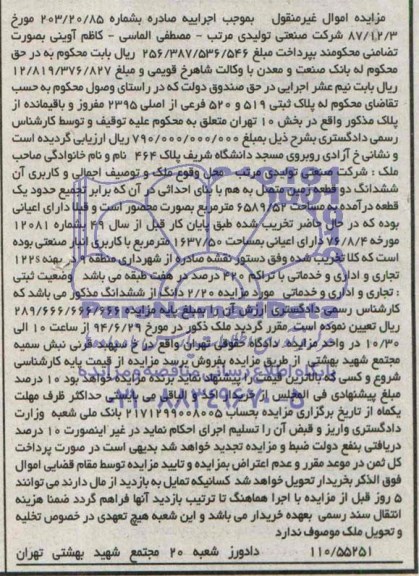 مزایده اموال غیرمنقول بموجب اجراییه صادره بشماره ۲۰۳/۲۰/۸۵ مورخ
۸۷/۱۲/۳ شرکت صنعتی تولیدی مرتب - مصطفی الماسی - کاظم آوینی بصورت
تضامنی محکومند بپرداخت مبلغ ۲۵۶/۳۸۷/۵۳۶/۵۴۶ ریال بابت محکوم به در حق
محکوم له بانک صنعت و معدن با وکالت شاهرخ قویمی و مبلغ ۱۲/۸۱۹/۳۷۶/۸۲۷
ریال بابت نیم عشر اجرایی در حق صندوق دولت که در راستای وصول محکوم به حسب
تقاضای محکوم له پلاک ثبتی ۵۱۹ و ۵۲۰ فرعی از اصلی ۲۳۹۵ مفروز و باقیمانده از
پلاک مذکور واقع در بخش ۱۰ تهران متعلق به محکوم علیه توقیف و توسط کارشناس
رسمی دادگستری بشرح ذیل بمبلغ ۷۹۰/۰۰۰/۰۰۰/۰۰۰ ریال ارزیابی گردیده است
و نشانی خ آزادی روبروی مسجد دانشگاه شریف پلاک ۴۶۴ نام و نام خانوادگی صاحب
ملک : شرکت صنعتی تولیدی مرتب محل وقوع ملک و توصیف اجمالی و کاربری آن
ششدانگ دو قطعه زمین متصل به هم با بنای احداثی در آن که برابر تجمیع حدود یک
قطعه درآمده به مساحت ۶۵۸۹/۵۲ مترمربع بصورت محصور است و قبلا دارای اعیانی
بوده که در حال حاضر تخریب شده طبق پایان کار قبل از سال ۴۹ بشماره ۱۲۰۸۱
مورخه ۷۶/۸/۴ دارای اعیانی بمساحت ۱۶۳۷/۵۰ مترمربع با کاربری انبار صنعتی بوده
است که کلا تخریب شده وفق دستور نقشه صادره از شهرداری منطقه ۹ در پهنه ۱۲۲s
تجاری و اداری و خدماتی با تراکم ۴۲۰ درصد در هفت طبقه می باشد وضعیت ثبتی
: تجاری و اداری و خدماتی مورد مزایده ۲/۲۰ دانگ از ششدانگ مذکور می باشد که
کارشناس رسمی دادگستری ارزش آن را بمبلغ پایه مزایده ۲۸۹/۶۶۶/۶۶۶/۶۶۶
ریال تعیین نموده است مقرر گردید ملک ذکور در مورخ ۹۴/۶/۲۹ از ساعت ۱۰ الی
۱۰/۳۰ در واحد مزایده دادگاه حقوقی تهران واقع در خ سپهبد قرنی نبش سمیه
مجتمع شهید بهشتی از طریق مزایده بفروش برسد مزایده از قیمت پایه کارشناسی
شروع و کسی که بالاترین قیمت را پیشنهاد نماید برنده مزایده خواهد بود ۱۰ درصد
مبلغ پیشنهادی فی المجلس از خریدار اخذ و الباقی می بایستی حداکثر ظرف مهلت
یکماه از تاریخ برگزاری مزایده بحساب ۲۱۷۱۲۹۹۰۰۸۰۰۵ بانک ملی شعبه وزارت
دادگستری واریز و قبض آن را تسلیم اجرای احکام نماید در غیر اینصورت ۱۰ درصد
دریافتی بنفع دولت ضبط و مزایده تجدید خواهد شد بدیهی است در صورت پرداخت
کل ثمن در موعد مقرر و عدم اعتراض بمزایده و تایید مزایده توسط مقام قضایی اموال
فوق الذکر بخریدار تحویل خواهد شد کسانیکه تمایل به بازدید از مال دارند می توانند
۵ روز قبل از مزایده با اجرا هماهنگ تا ترتیب بازدید آنها فراهم گردد ضمنا هزینه
انتقال سند رسمی بعهده خریدار می باشد و این شعبه هیچ تعهدی در خصوص تخلیه
و تحویل ملک موصوف ندارد
۱۱۰/۵۵۲۵۱ دادورز شعبه ۲۰ مجتمع شهید بهشتی تهران